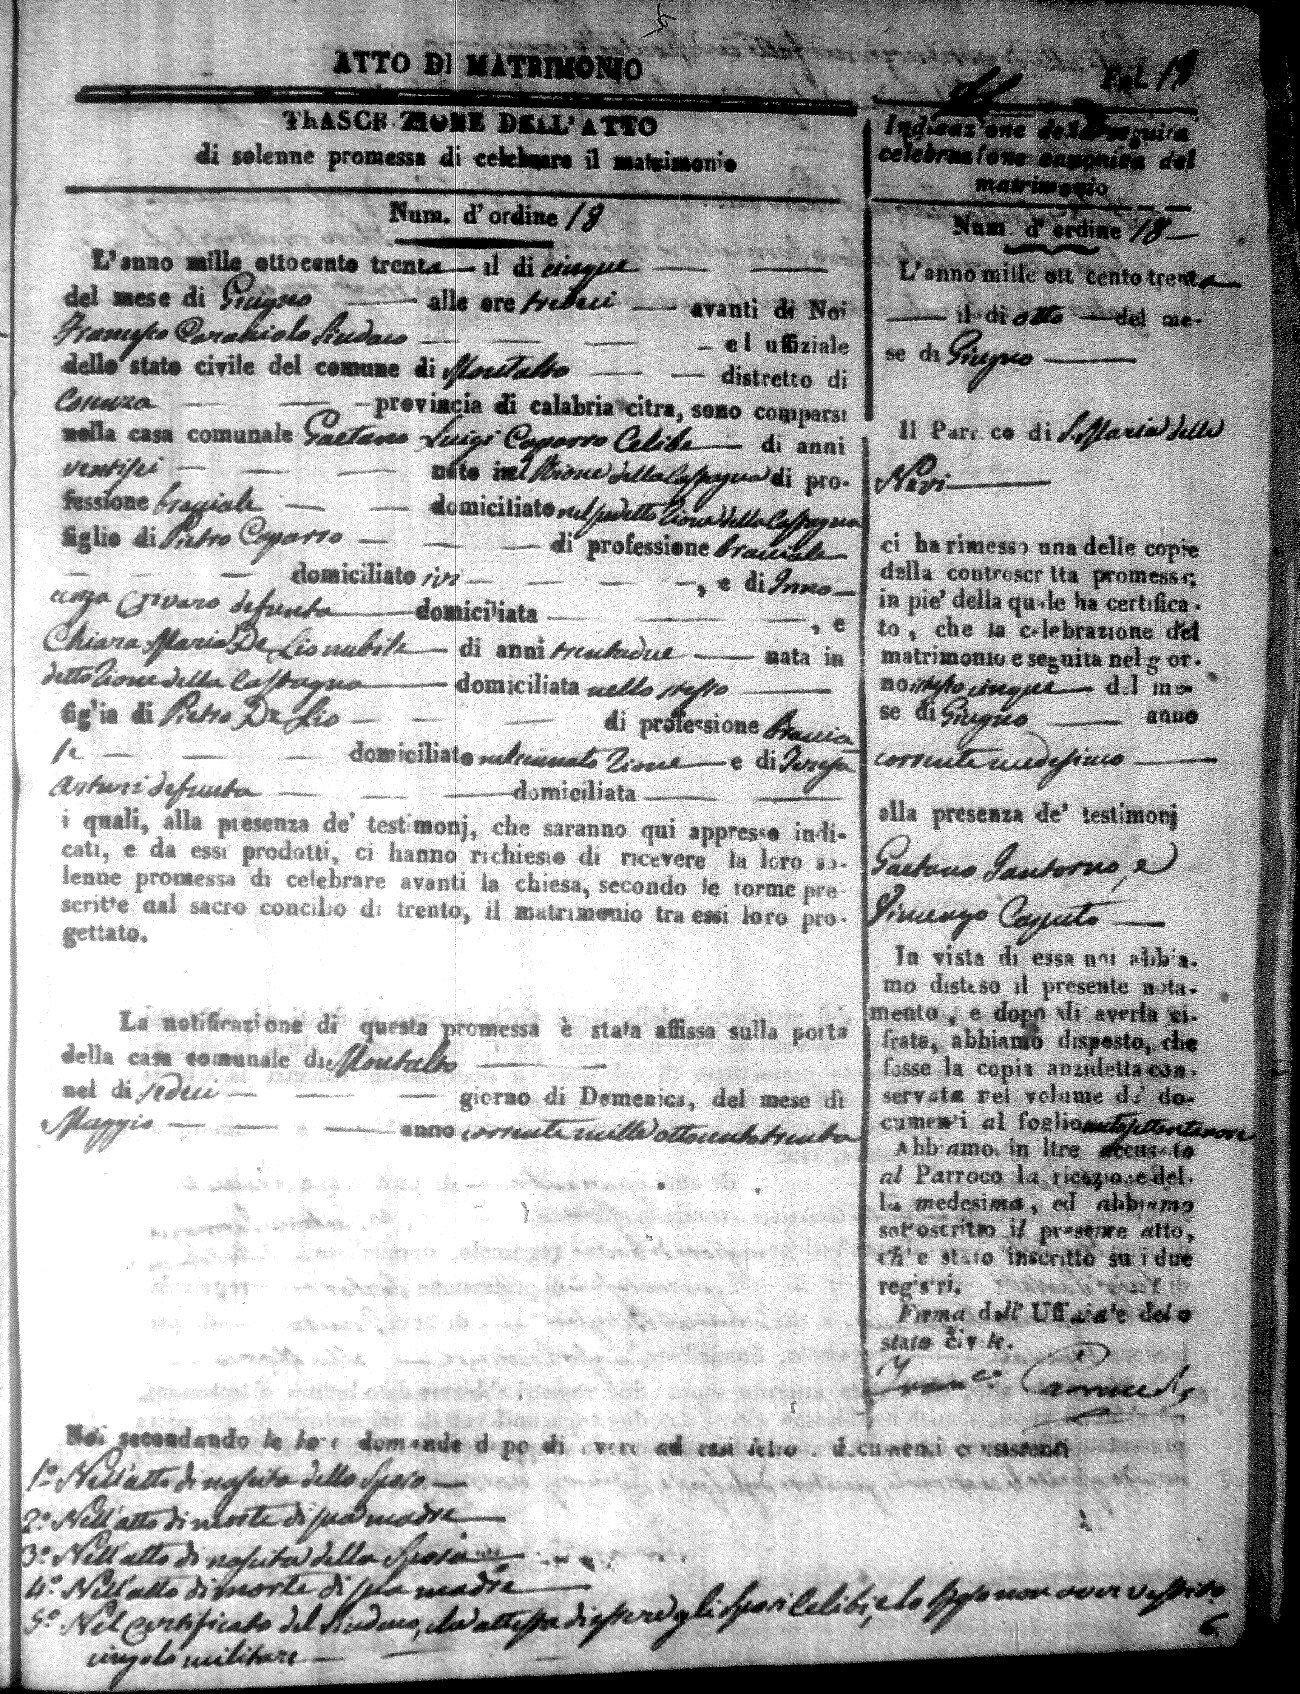 ATTO DI MATRIMONIO
Fol. 18
TRASCRIZIONE DELL'ATTO
di solenne promessa di celebrare il matrimonio
Num. d'ordine 18
L'anno mille ottocento trenta — il di cinque — —
del mese di Giugno — alle ore tredici — avanti di Noi
Sindaco — — — — el uffiziale
dello stato civile del comune di Montalto — — distretto di
Cosenza — — — provincia di calabria citra, sono comparsi
nella casa comunale Gaetano Luigi Caparro Celibe — di anni
ventisei — — — nato in Rione della Caspagna di pro-
fessione bracciale — — domiciliato nel sudetto Rione della Caspagna
figlio di Pietro Caparro — — — di professione bracciale
— — — domiciliato ivi — — — —, e di Inno-
cenza defunta — domiciliata — — — —, e
Chiara Maria De Lio nubile — di anni trentadue — nata in
detto Rione della Caspagna — domiciliata nello stesso —
figlia di Pietro De Lio — — — di professione Braccia
le — — — domiciliato nel Rione — e di Teresa
Arturi defunta — — — domiciliata — —
i quali, alla presenza de' testimonj, che saranno qui appresso indi-
cati, e da essi prodotti, ci hanno richiesto di ricevere la loro so-
lenne promessa di celebrare avanti la chiesa, secondo le forme pre-
scritte dal sacro concilio di trento, il matrimonio tra essi loro pro-
gettato.
La notificazione di questa promessa è stata affissa sulla porta
della casa comunale di Montalto — — —
nel di sedici — — — giorno di Domenica, del mese di
Maggio — — — anno corrente mille ottocento trenta
Noi secondando le loro domande dopo di avere ad essi letto i documenti consistenti
1.° Nell'atto di nascita dello Sposo —
2.° Nell'atto di morte di sua madre —
3.° Nell'atto di nascita della Sposa —
4.° Nell'atto di morte di sua madre —
5.° Nel certificato del Sindaco, che attesta di essere gli sposi Celibi, e lo sposo non aver vestito
cingolo militare —
Indicazione della seguita
celebrazione canonica del
matrimonio
Num. d'ordine 18 —
L'anno mille ottocento trenta —
— il di otto — del me-
se di Giugno —
Il Parroco di S. Maria della
Nevi —
ci ha rimesso una delle copie
della controscritta promessa;
in pie' della quale ha certifica-
to, che la celebrazione del
matrimonio e seguita nel gior-
no cinque — del me-
se di Giugno — anno
corrente medesimo —
alla presenza de' testimonj
Gaetano Santorno, e
Vincenzo Caputo —
In vista di essa noi abbia-
mo disteso il presente nota-
mento, e dopo di averla ci-
frata, abbiamo disposto, che
fosse la copia anzidetta con-
servata nel volume de' do-
cumenti al foglio
Abbiamo in ltre accusato
al Parroco la ricezione del-
la medesima, ed abbiamo
sottoscritto il presente atto,
ch'e stato inscritto su i due
registri.
Firma dell' Uffiziale dello
stato Civile.